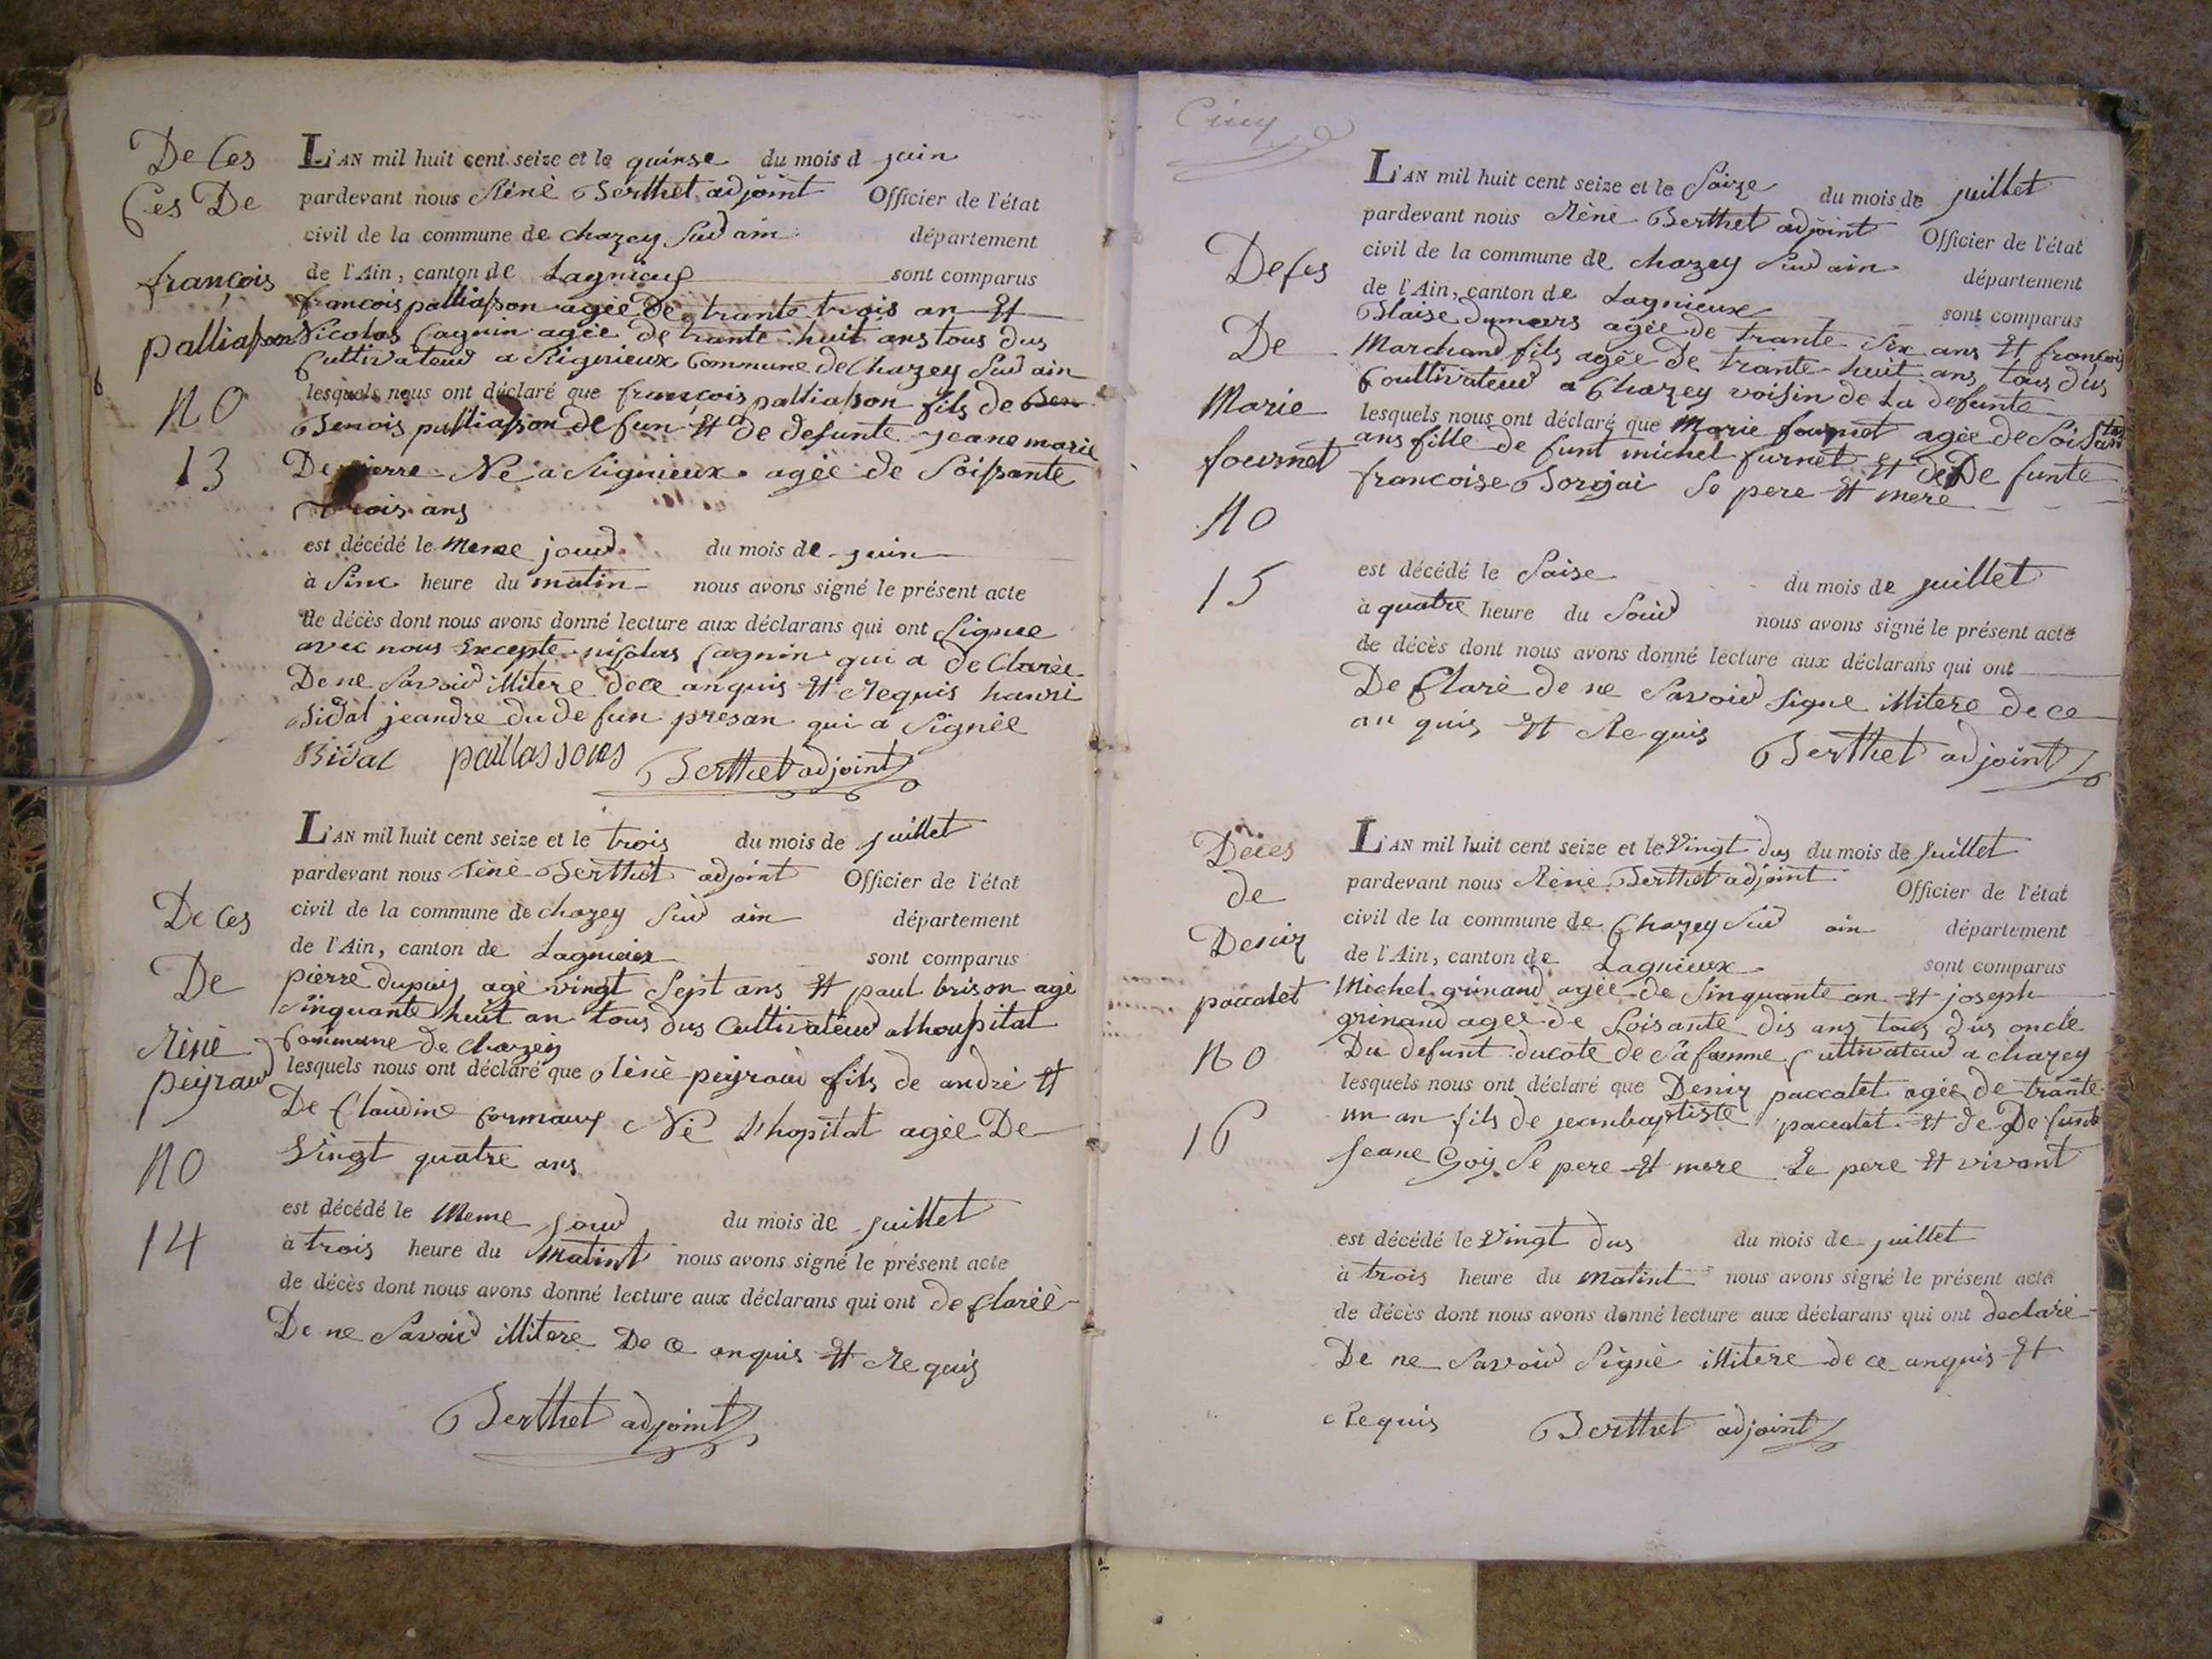 De Ces
Ces De
françois
palliasson
NO
13
L'AN mil huit cent seize et le quinse du mois d juin
pardevant nous Rénè Berthet adjoint Officier de l'état
civil de la commune de chazey Sur ain département
de l'Ain, canton de Lagnieux sont comparus
françois palliasson agée de trante trois an Et
Nicolas Cagnin agée de trante huit ans tous dus
Cultivateur a Rignieux Commune de Chazey Sur ain
lesquels nous ont déclaré que françois palliasson fils de Ben
Benois palliasson defun Et de defunte jeane marie
De pierre Né a Rignieux agée de Soissante
trois ans
est décédé le Meme jour du mois de juin
à Sinc heure du matin nous avons signé le présent acte
de décès dont nous avons donné lecture aux déclarans qui ont Signee
avec nous Excepte nicolas Cagnin qui a de Clarée
De ne Savoir illitere de ce anquis Et Requis hanri
Bidal jeandre du defun presan qui a Signée
Bidal pallassons Berthet adjoint
De Ces
De
Rènè
peyraud
NO
14
L'AN mil huit cent seize et le trois du mois de juillet
pardevant nous Rénè Berthet adjoint Officier de l'état
civil de la commune de chazey Sur ain département
de l'Ain, canton de Lagnieux sont comparus
pierre dupuis agé vingt Sept ans Et paul brison agé
Sinquante huit an tous dus Cultivateur alhouspital
Commune de Chazey
lesquels nous ont déclaré que Rènè peyraud fils de andrè Et
De Claudine Cormaux Né L'hopital agée De
Vingt quatre ans
est décédé le Meme jour du mois de juillet
à trois heure du Matint nous avons signé le présent acte
de décès dont nous avons donné lecture aux déclarans qui ont de Clarée
De ne Savoir illitere De ce anquis Et Requis
Berthet adjoint
Cinq
Deces
De
Marie
fournet
NO
15
L'AN mil huit cent seize et le Saize du mois de juillet
pardevant nous Rènè Berthet adjoint Officier de l'état
civil de la commune de chazey Sur ain département
de l'Ain, canton de Lagnieux sont comparus
Blaise dumars agée de trante Six ans Et françois
Marchand fils agée de trante huit ans tous dus
Coultivateur a Chazey voisin de La defunte
lesquels nous ont déclaré que Marie fournet agée de Soisante
ans fille de funt michel furnet Et de De funte
francoise Borojai Se pere Et mere
est décédé le Saise du mois de juillet
à quatre heure du Soir nous avons signé le présent acte
de décès dont nous avons donné lecture aux déclarans qui ont
De Claré de ne Savoir signe illitere de ce
an quis Et Requis Berthet adjoint
Deces
de
Deniz
paccalet
NO
16
L'AN mil huit cent seize et le Vingt dus du mois de juillet
pardevant nous Rènè Berthet adjoint Officier de l'état
civil de la commune de Chazey Sur ain département
de l'Ain, canton de Lagnieux sont comparus
Michel grinand agée de Sinquante an Et joseph
grinand agee de Soisante dis ans tous dus oncle
Du defunt ducote de Sa famme Cultivateur a chazey
lesquels nous ont déclaré que Deniz paccalet agée de trante
un an fils de jeanbaptiste paccalet Et de De funte
Jeane Goy Se pere Et mere Le pere Et vivant
est décédé le Vingt dus du mois de juillet
à trois heure du Matint nous avons signé le présent acte
de décès dont nous avons donné lecture aux déclarans qui ont declaré
De ne Savoir Signè illitere de ce anquis Et
Requis Berthet adjoint